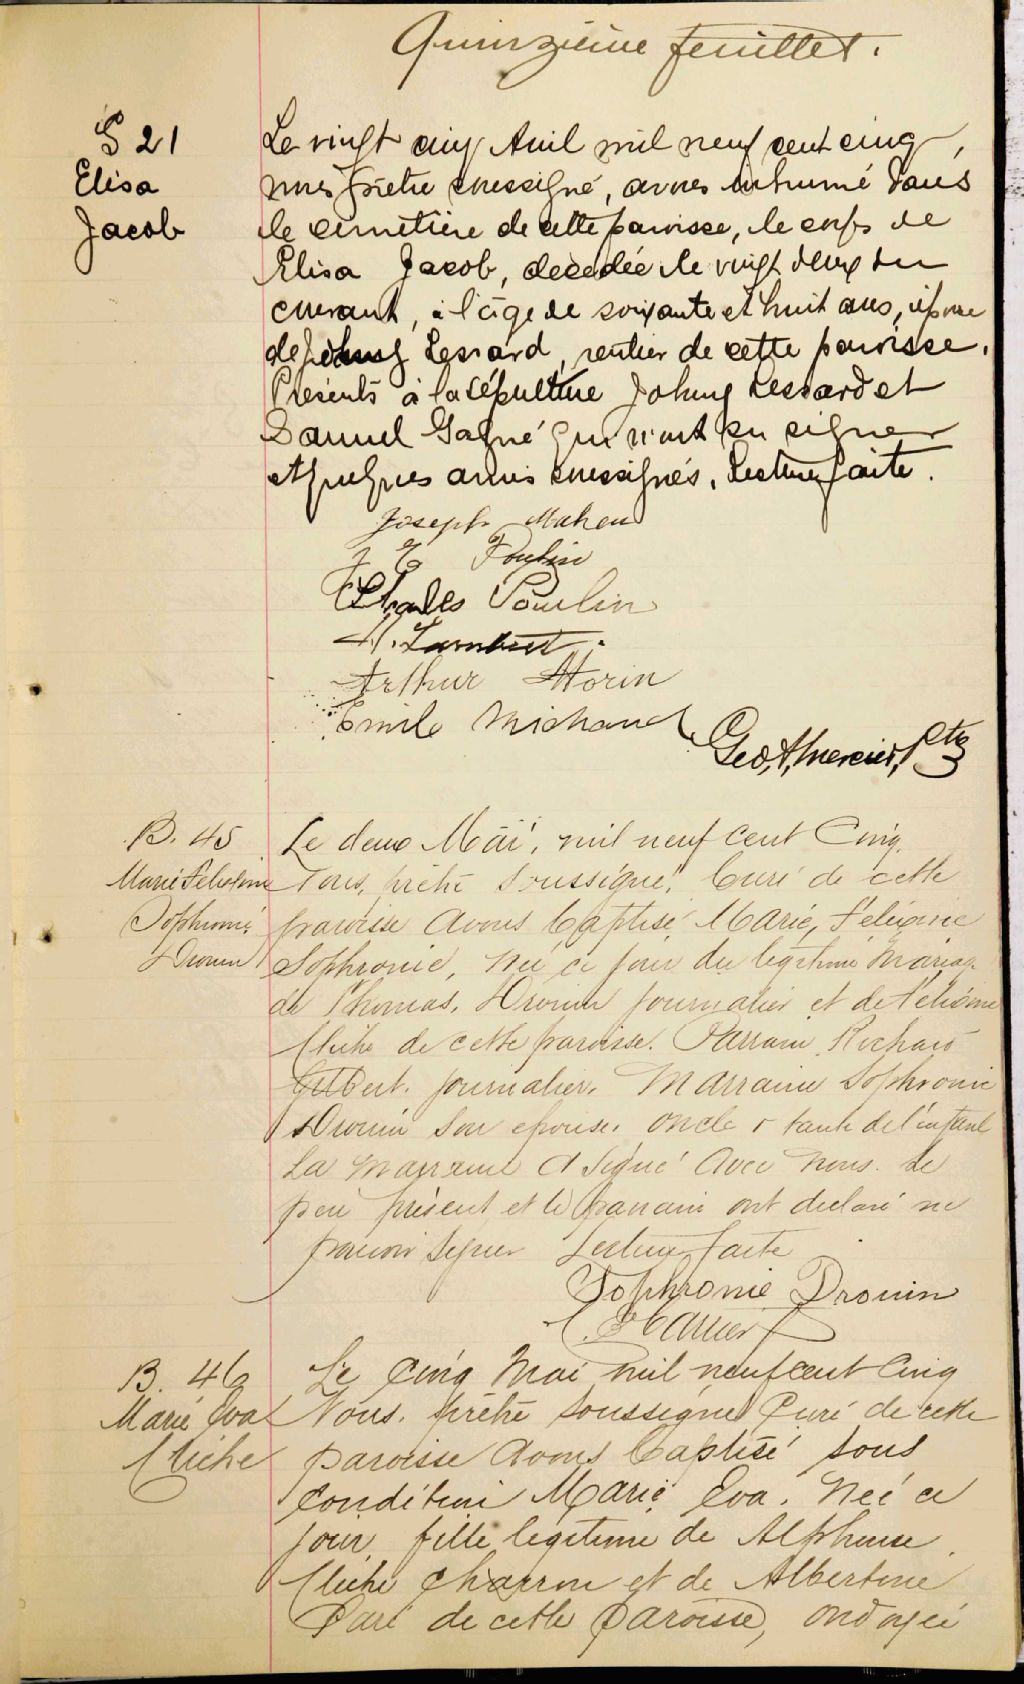 Quinzième feuillet.
S 21
Elisa
Jacob
Le vingt cinq Avril mil neuf cent cinq,
nous prêtre soussigné, avons inhumé dans
le cimetière de cette paroisse, le corps de
Elisa Jacob, décédée le vingt deux du
courant, à l'âge de soixante et huit ans, épouse
de Johny Lessard, rentier de cette paroisse.
Présents à la sépulture Johny Lessard et
Samuel Gagné qui n'ont su signer
et quelques amis soussignés. Lecture faite.
Joseph Maheu
J E Poulin
Charles Poulin
A. Lambert.
Arthur Morin
Emile Michaud
Geo. A. Mercier, Ptre
B. 45
Marie Feléxine
Sophronie
Drouin
Le deux Mai, mil neuf cent Cinq.
Nous, prêtre soussigné, Curé de cette
paroisse avons Baptisé Marie, Féléxine
Sophronie, née ce jour du légitime mariage
de Thomas, Drouin journalier et de Féléxine
Cliche de cette paroisse. Parrain Richard
Gilbert. journalier. Marraine Sophronie
Drouin son epouse. oncle & tante de l'enfant
La marraine a signé avec nous. Le
père présent et le parrain ont declaré ne
pouvoir signer Lecture faite
Sophronie Drouin
B. 46
Marie Eva
Cliche
Le Cinq Mai mil neuf cent Cinq
Nous. prêtre soussigné Curé de cette
paroisse avons Baptisé sous
condition Marie Eva. Née ce
jour fille légitime de Alphonse
Cliche charron et de Albertine
Paré de cette paroisse, ondoyée